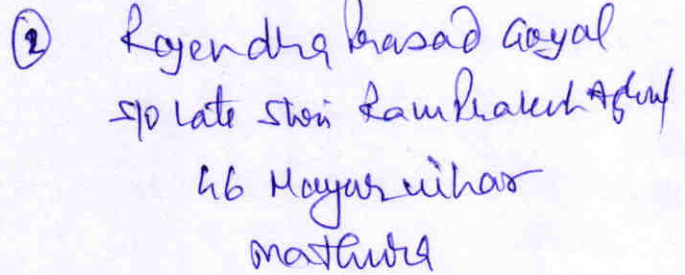 ② Rajendra Prasad Goyal
S/o Late Shri Ram Prakash
46 Mayur vihar
Mathura